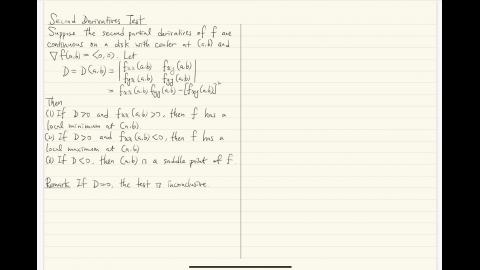 Second Derivatives Test
Suppose the second partial derivatives of f are
continuous on a disk with center at (a,b) and
∇f(a,b) = <0,0>. Let
D = D(a,b) = | fxx(a,b) fxy(a,b) |
| fyx(a,b) fyy(a,b) |
= fxx(a,b) fyy(a,b) - [fxy(a,b)]²
Then
(1) If D>0 and fxx(a,b)>0, then f has a
local minimum at (a,b).
(2) If D>0 and fxx(a,b)<0, then f has a
local maximum at (a,b)
(3) If D<0, then (a,b) is a saddle point of f.
Remark If D=0, the test is inconclusive.